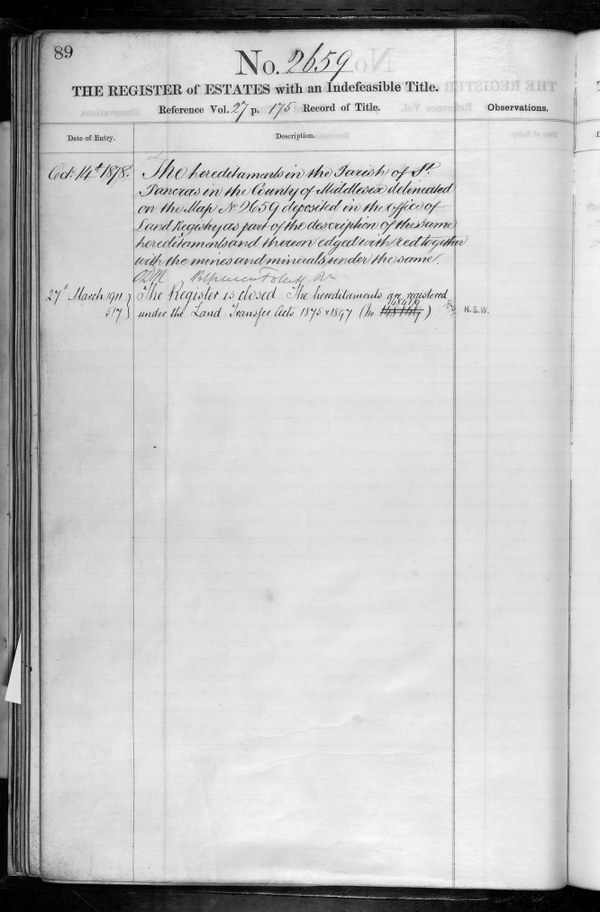 89
No. 2659
THE REGISTER of ESTATES with an Indefeasible Title.
Reference Vol. 27 p. 175 Record of Title.
Observations.
Date of Entry.
Description.
Oct. 14th 1878.
The hereditaments in the Parish of St.
Pancras in the County of Middlesex delineated
on the Map No 2659 deposited in the Office of
Land Registry as part of the description of the same
hereditaments and thereon edged with red together
with the mines and minerals under the same.
27th March 1911
517
The Register is closed The hereditaments are registered
under the Land Transfer Acts 1875 & 1897 (No )
H.S.W.